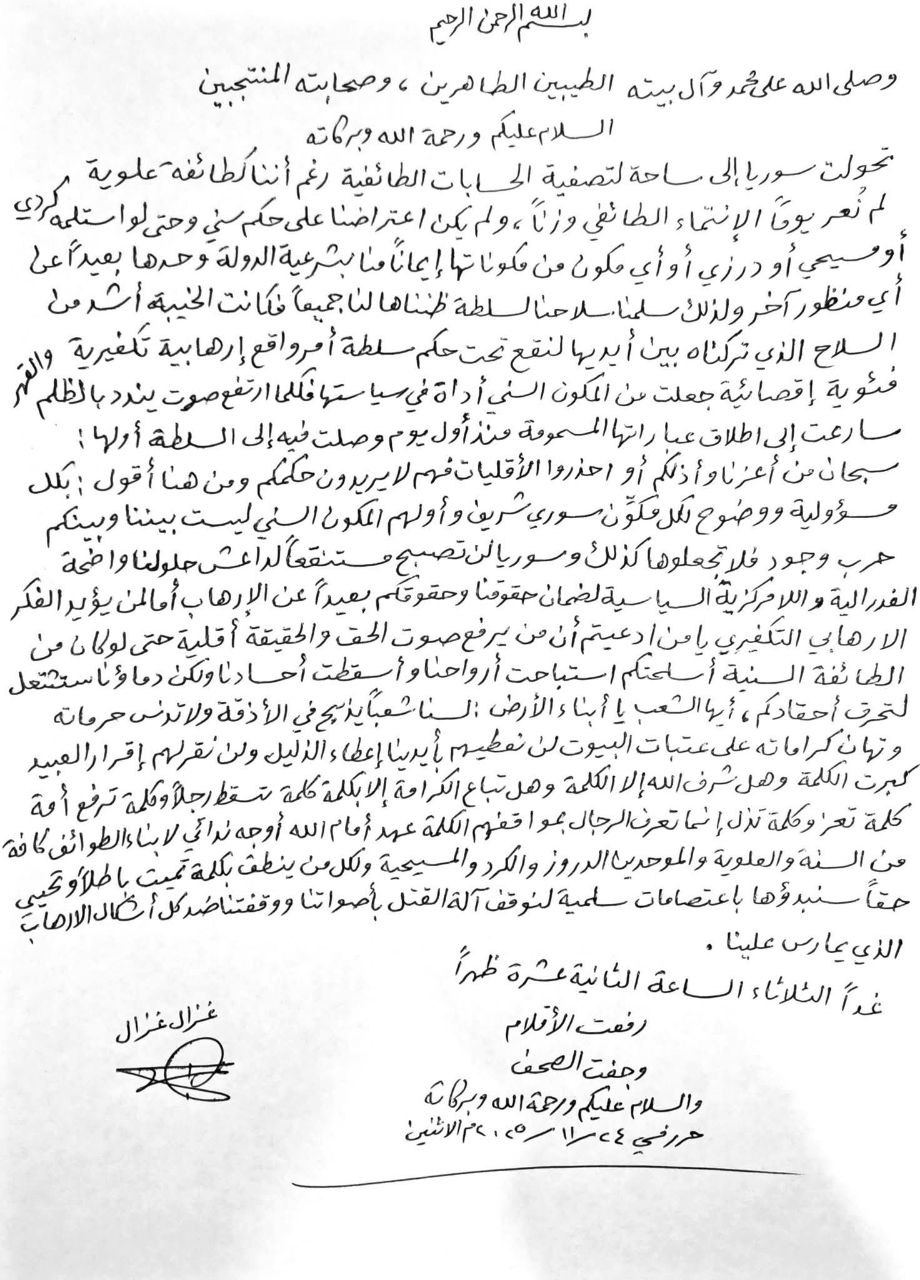 بسم الله الرحمن الرحيم
وصلى الله على محمد وآل بيته الطيبين الطاهرين ، وصحابته المنتجبين
السلام عليكم ورحمة الله وبركاته
تحولت سوريا إلى ساحة لتصفية الحسابات الطائفية رغم أننا كطائفة علوية
لم نُعر يوماً الإنتماء الطائفي وزناً ، ولم يكن اعتراضنا على حكم سني وحتى لو استلمه كردي
أو مسيحي أو درزي أو أي مكون من مكوناتها إيماناً منا بشرعية الدولة وحدها بعيداً عن
أي منظور آخر ولذلك سلمنا سلاحنا لسلطة ظنناها لنا جميعاً فكانت الخيبة أشد من
السلاح الذي تركناه بين أيديها لنقع تحت حكم سلطة أمر واقع إرهابية تكفيرية
فئوية إقصائية جعلت من المكون السني أداة في سياستها فكلما ارتفع صوت يندد بالظلم والقهر
سارعت إلى اطلاق عباراتها المسمومة منذ أول يوم وصلت فيه إلى السلطة أولها :
سبحان من أعزنا وأذلكم أو احذروا الأقليات فهم لا يريدون حكمكم ومن هنا أقول : بكل
مسؤولية ووضوح لكل مكوّن سوري شريف وأولهم المكون السني ليست بيننا وبينكم
حرب وجود فلا تجعلوها كذلك وسوريا لن تصبح مستنقعاً لداعش حلولنا واضحة
الفدرالية واللامركزية السياسية لضمان حقوقنا وحقوقكم بعيداً عن الإرهاب أما لمن يؤيد الفكر
الارهابي التكفيري يا من ادعيتم أن من يرفع صوت الحق والحقيقة أقلية حتى لو كان من
الطائفة السنية أسلحتكم استباحت أرواحنا وأسقطت أجسادنا ولكن دماؤنا ستشتعل
لتحرق أحقادكم ، أيها الشعب يا أبناء الأرض : لسنا شعباً يذبح في الأزقة ولا تدنس حرماته
وتهان كراماته على عتبات البيوت لن نعطيهم بأيدينا إعطاء الذليل ولن نقر لهم إقرار العبيد
كبرت الكلمة وهل شرف الله إلا الكلمة وهل تباع الكرامة إلا بكلمة كلمة تسقط رجلاً وكلمة ترفع أمة
كلمة تعز وكلمة تذل إنما تعرف الرجال بمواقفهم الكلمة عهد أمام الله أوجه ندائي لابناء الطوائف كافة
من السنة والعلوية والموحدين الدروز والكرد والمسيحية ولكل من ينطق بكلمة تميت باطلاً وتحيي
حقاً سنبدؤها باعتصامات سلمية لنوقف آلة القتل بأصواتنا ووقفتنا ضد كل أشكال الارهاب
الذي يمارس علينا .
غداً الثلاثاء الساعة الثانية عشرة ظهراً
رفعت الأقلام
وجفت الصحف
والسلام عليكم ورحمة الله وبركاته
حرر في ٢٤ / ١١ / ٢٠٢٥ م الاثنين
غزال غزال